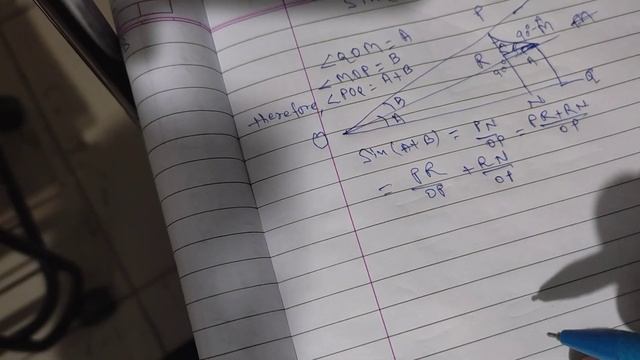 Sin
∠QOM = A
∠MOP = B
therefore, ∠POQ = A+B
P
90°-A
M
R
A
90°
B
A
O
N
Q
Sin(A+B) = PN/OP = PR+RN/OP
= PR/OP + RN/OP